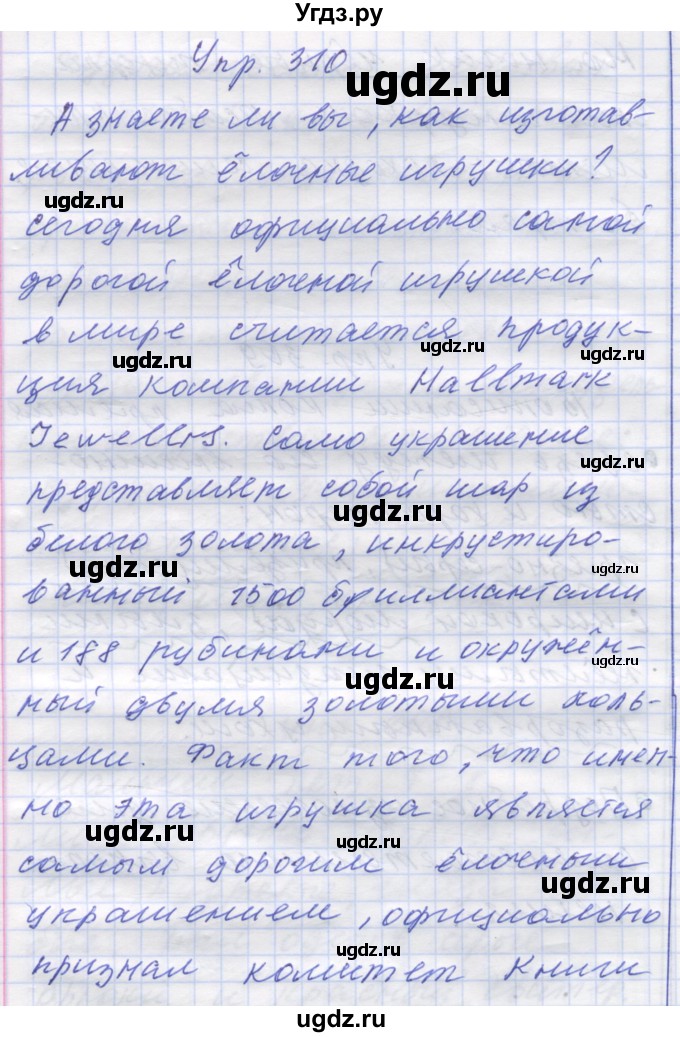 Угдз.ру
Упр. 310
А знаете ли вы, как изготав-
ливают ёлочные игрушки?
ugdz.ru
ugdz.ru
ugdz.ru
Сегодня официально самой
дорогой ёлочной игрушкой
в мире считается продук-
ugdz.ru
ugdz.ru
ция компании Hallmark
Jewellrs. Само украшение
ugdz.ru
представляет собой шар из
ugdz.ru
белого золота, инкрустиро-
ugdz.ru
ugdz.ru
ванный 1500 бриллиантами
и 188 рубинами и окружён-
ugdz.ru
ugdz.ru
ный двумя золотыми коль-
цами. Факт того, что имен-
но эта игрушка является
ugdz.ru
ugdz.ru
самым дорогим ёлочным
ugdz.ru
украшением, официально
ugdz.ru
признал комитет Книги
ugdz.ru